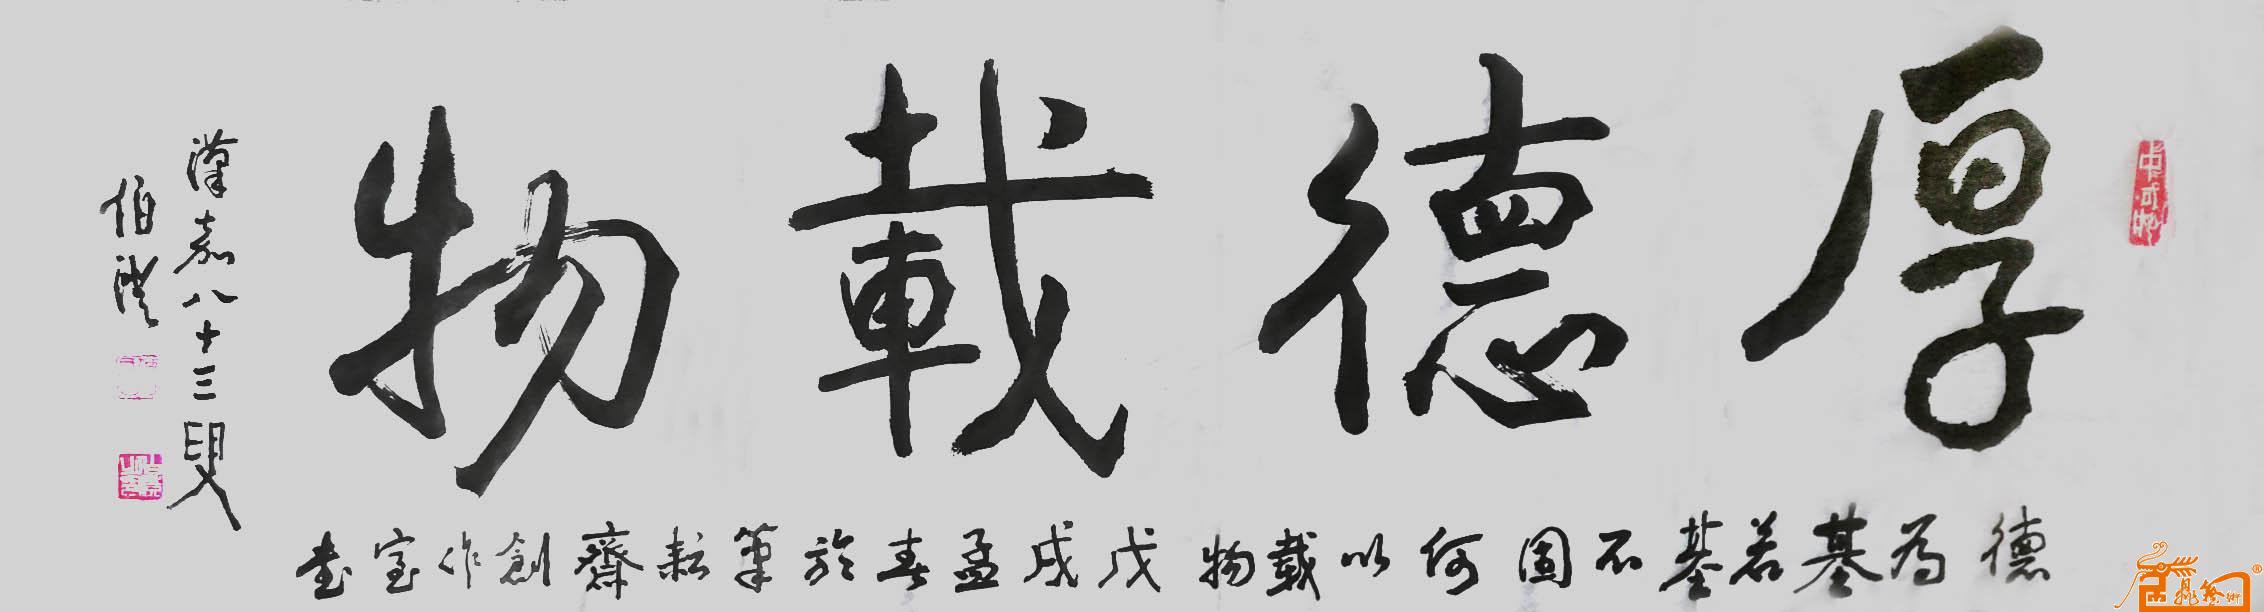 厚德載物
德為基若基不固何以載物戊戌孟春於筆耘齋創作室書
漢嘉八十三叟
伯澄